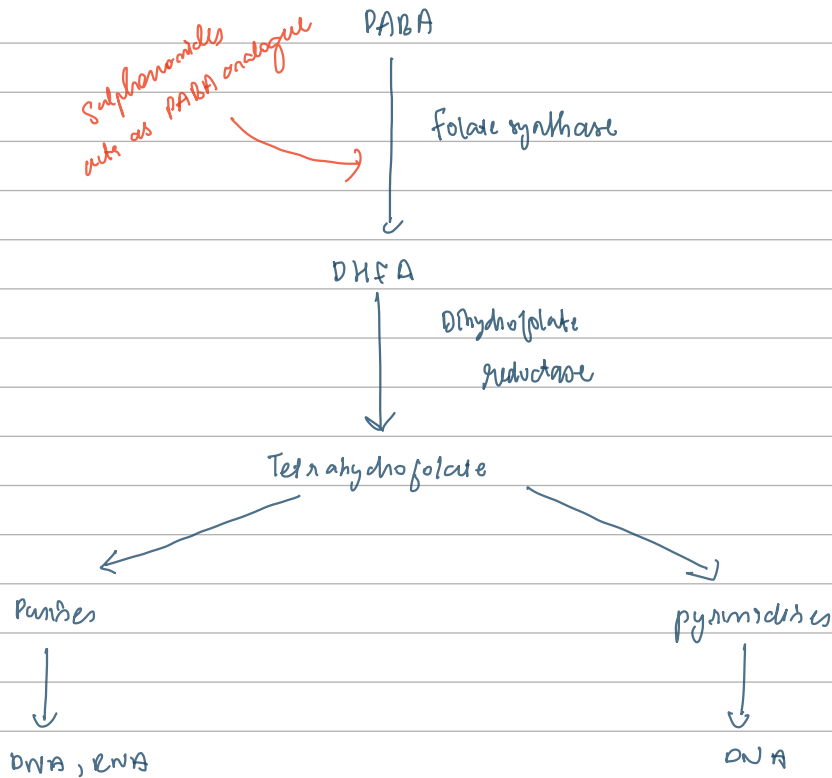 PABA
Sulphonamides
acts as PABA analogue
folate synthase
DHFA
Dihydrofolate
reductase
Tetrahydrofolate
Purines
pyrimidines
DNA, RNA
DNA